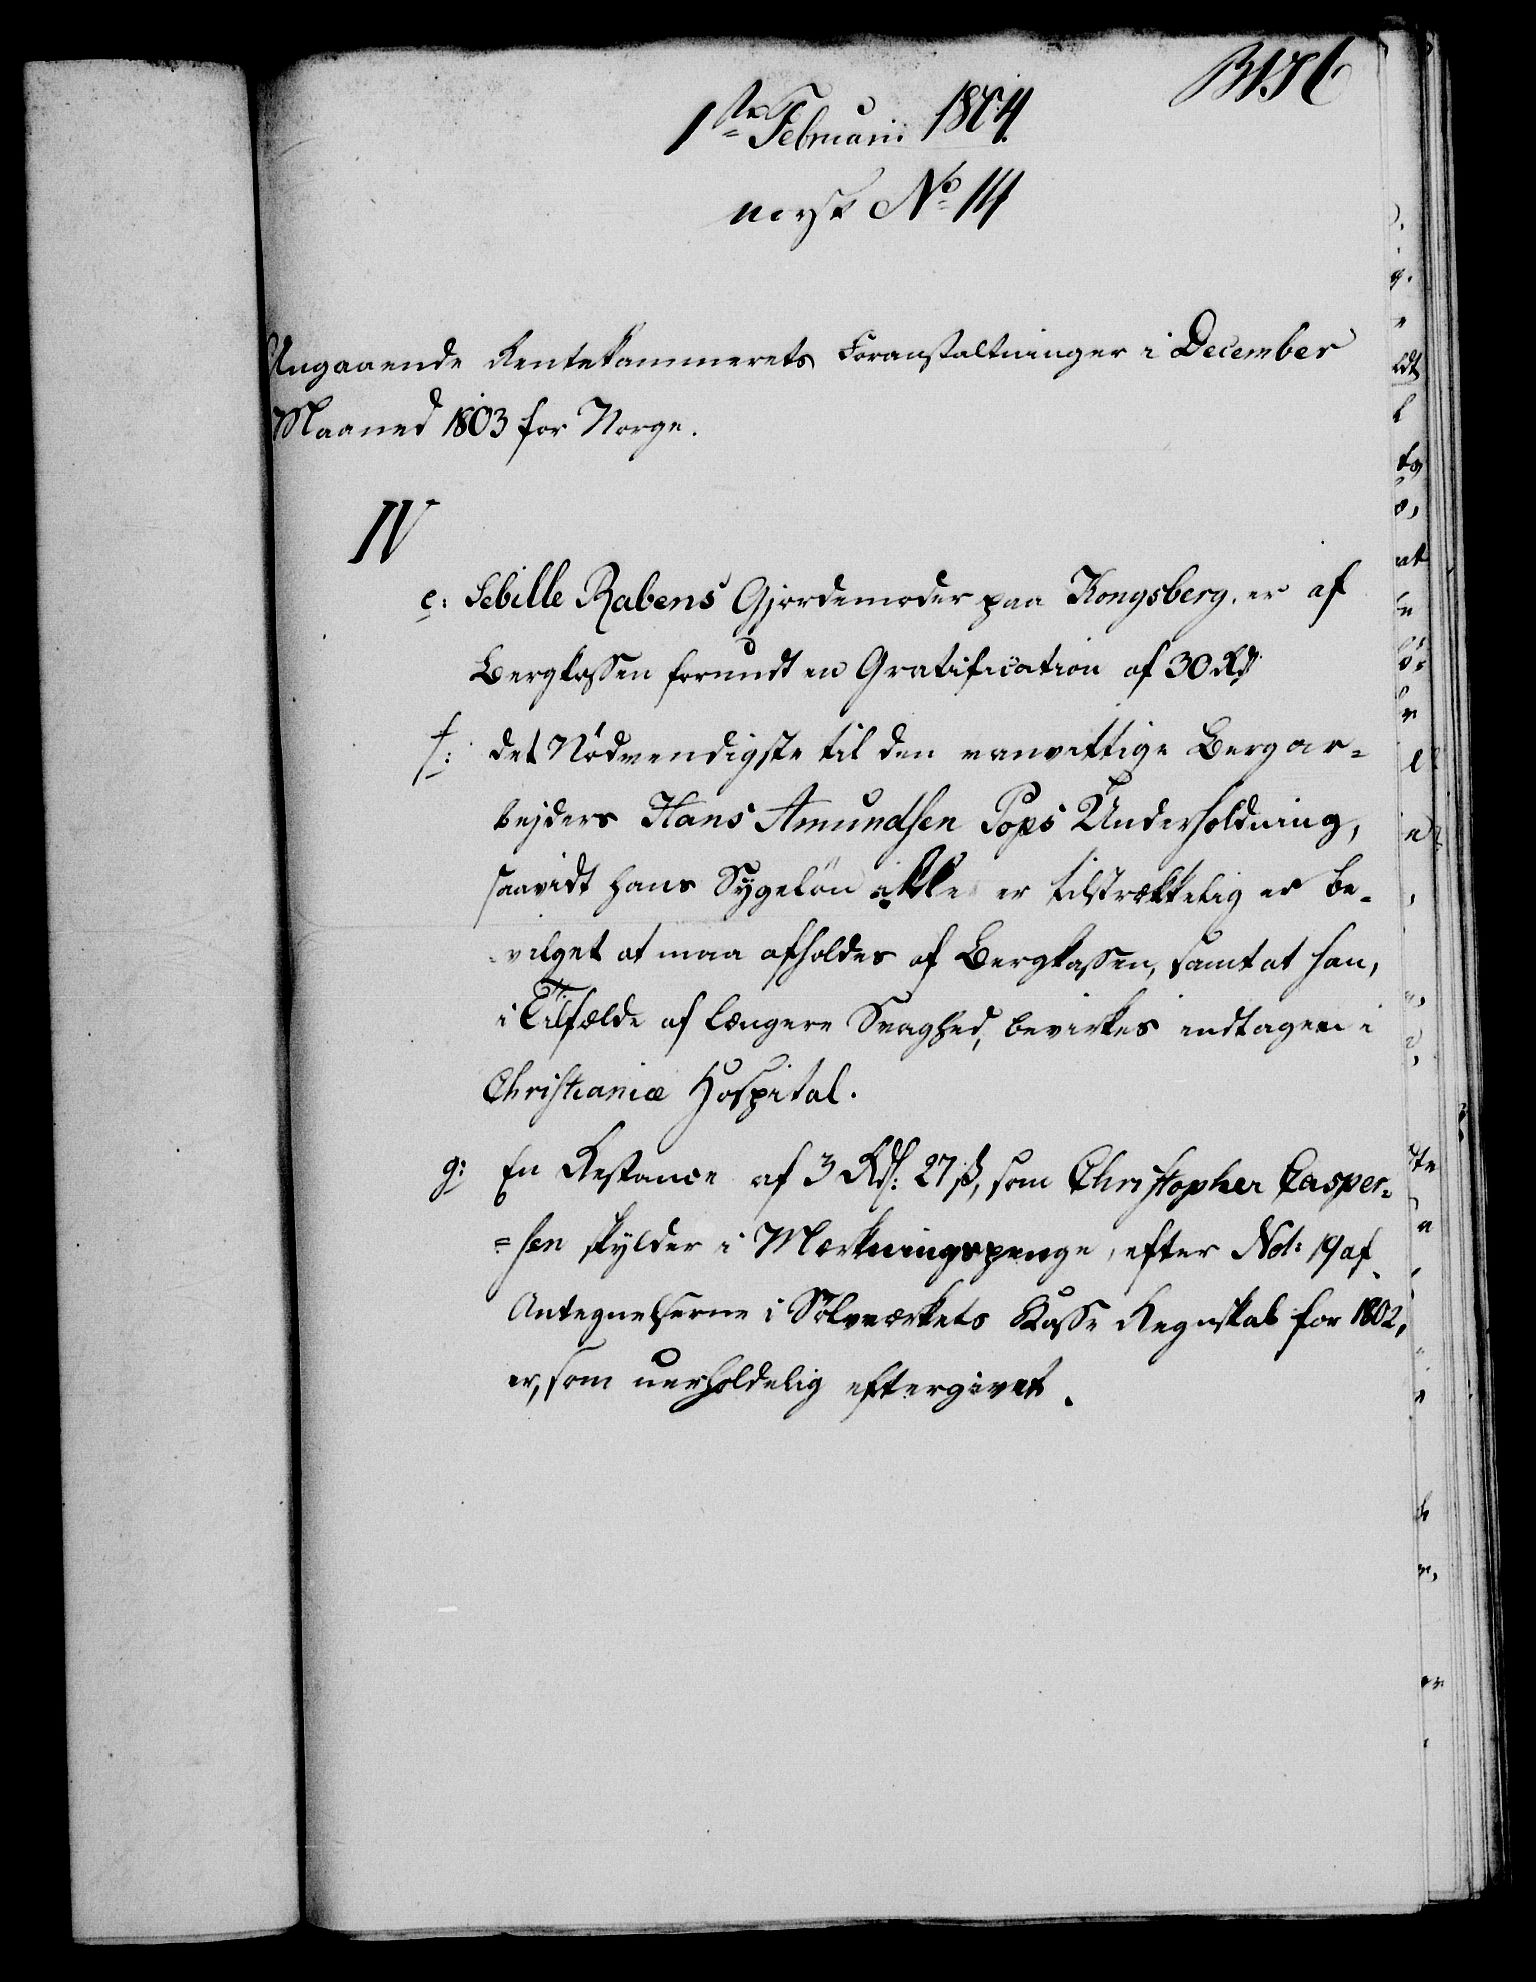 1ste Februari 1804
norsk No 14
Angaaende Rentekammerets Foranstaltninger i December
Maaned 1803 for Norge.
IV
e: Sebille Rabens Gjordemoder paa Kongsberg, er af
Bergkassen forundt en Gratification af 30 Rd
f: det Nödvendigste til den vanvittige Bergar-
bejders Hans Amundsen Pops Underholdning,
saavidt hans Sygelön ikke er tilstrækkelig er be-
vilget at maa afholdes af Bergkassen, samt at han,
i Tilfælde af længere Svaghed, bevirkes indtagen i
Christianiæ Hospital.
g: En Restance af 3 Rd: 27 ß, som Christopher Casper-
=sen skylder i Mærkningspenge, efter Not: 19 af
Antegnelserne i Sölvværkets Kasse Regnskab for 1802,
er, som uerholdelig eftergivet.